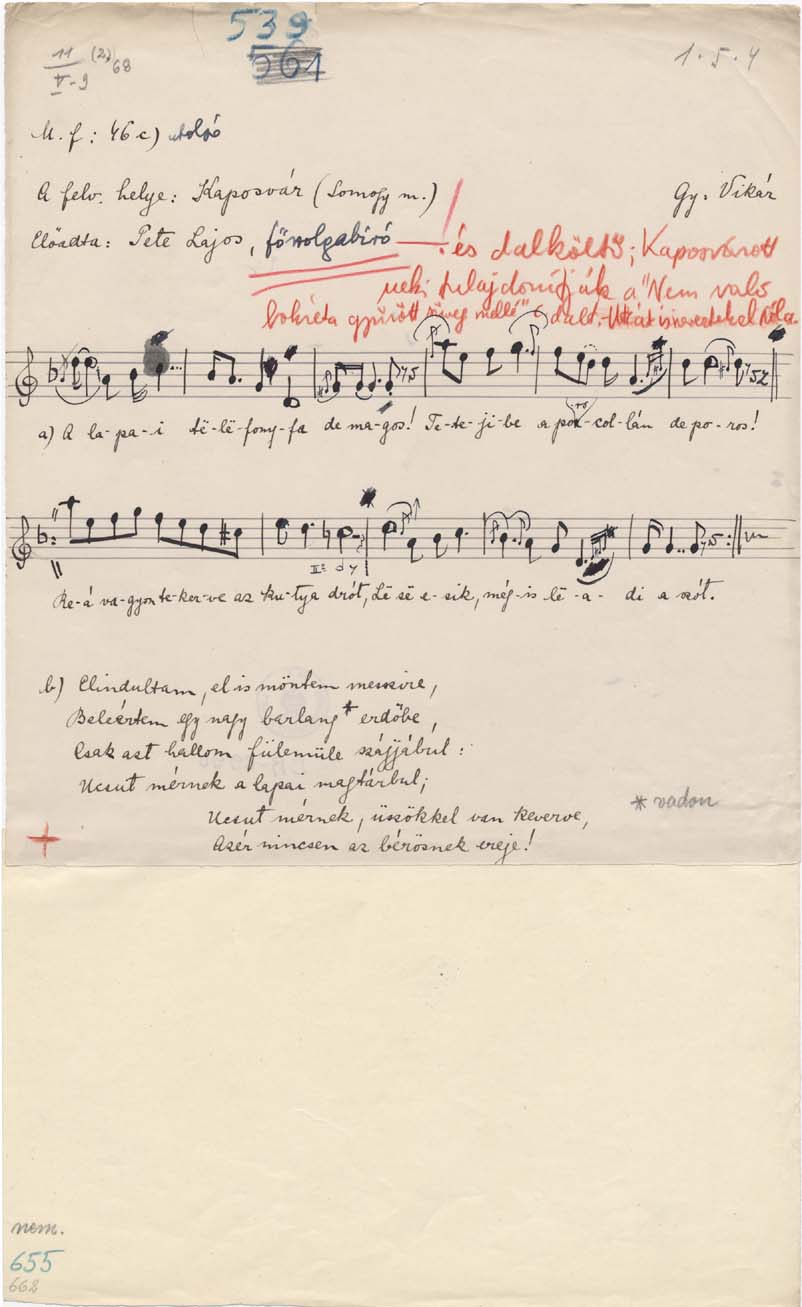 539
561
11 (2) 68
V-9
1.5.4
M. f: 46 c) utolsó
A felv. helye: Kaposvár (Somogy m.)
Gy. Vikár
Előadta: Pete Lajos, főszolgabíró — és dalköltő; Kaposvárott
neki tulajdonítják a "Nem való
bokréta gyűrött süveg mellé" dalt.
a) A la-pa-i të-lë-fony-fa de ma-gos! Te-te-ji-be a por-col-lán de po-ros!
II: d 7
Re-á va-gyon te-ker-ve az ku-tya drót, Lë së e-sik, még-is lë-a-di a szót.
b) Elindultam, el is möntem messzire,
Beleértem egy nagy barlang* erdőbe,
Csak azt hallom fülemüle szájjábul:
Ucsut mérnek a lapai magtárbul;
Ucsut mérnek, üszökkel van keverve,
* vadon
Azér nincsen az bérösnek ereje!
nem.
655
662